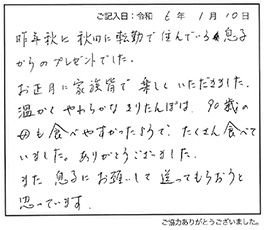 ご記入日：令和 6年 1月 10日
昨年秋に秋田に転勤で住んでいる息子
からのプレゼントでした。
お正月に家族皆で楽しくいただきました。
温かくやわらかなきりたんぽは、90歳の
母も食べやすかったようで、たくさん食べて
いました。ありがとうございました。
また息子にお願いして送ってもらおうと
思っています。
ご協力ありがとうございました。